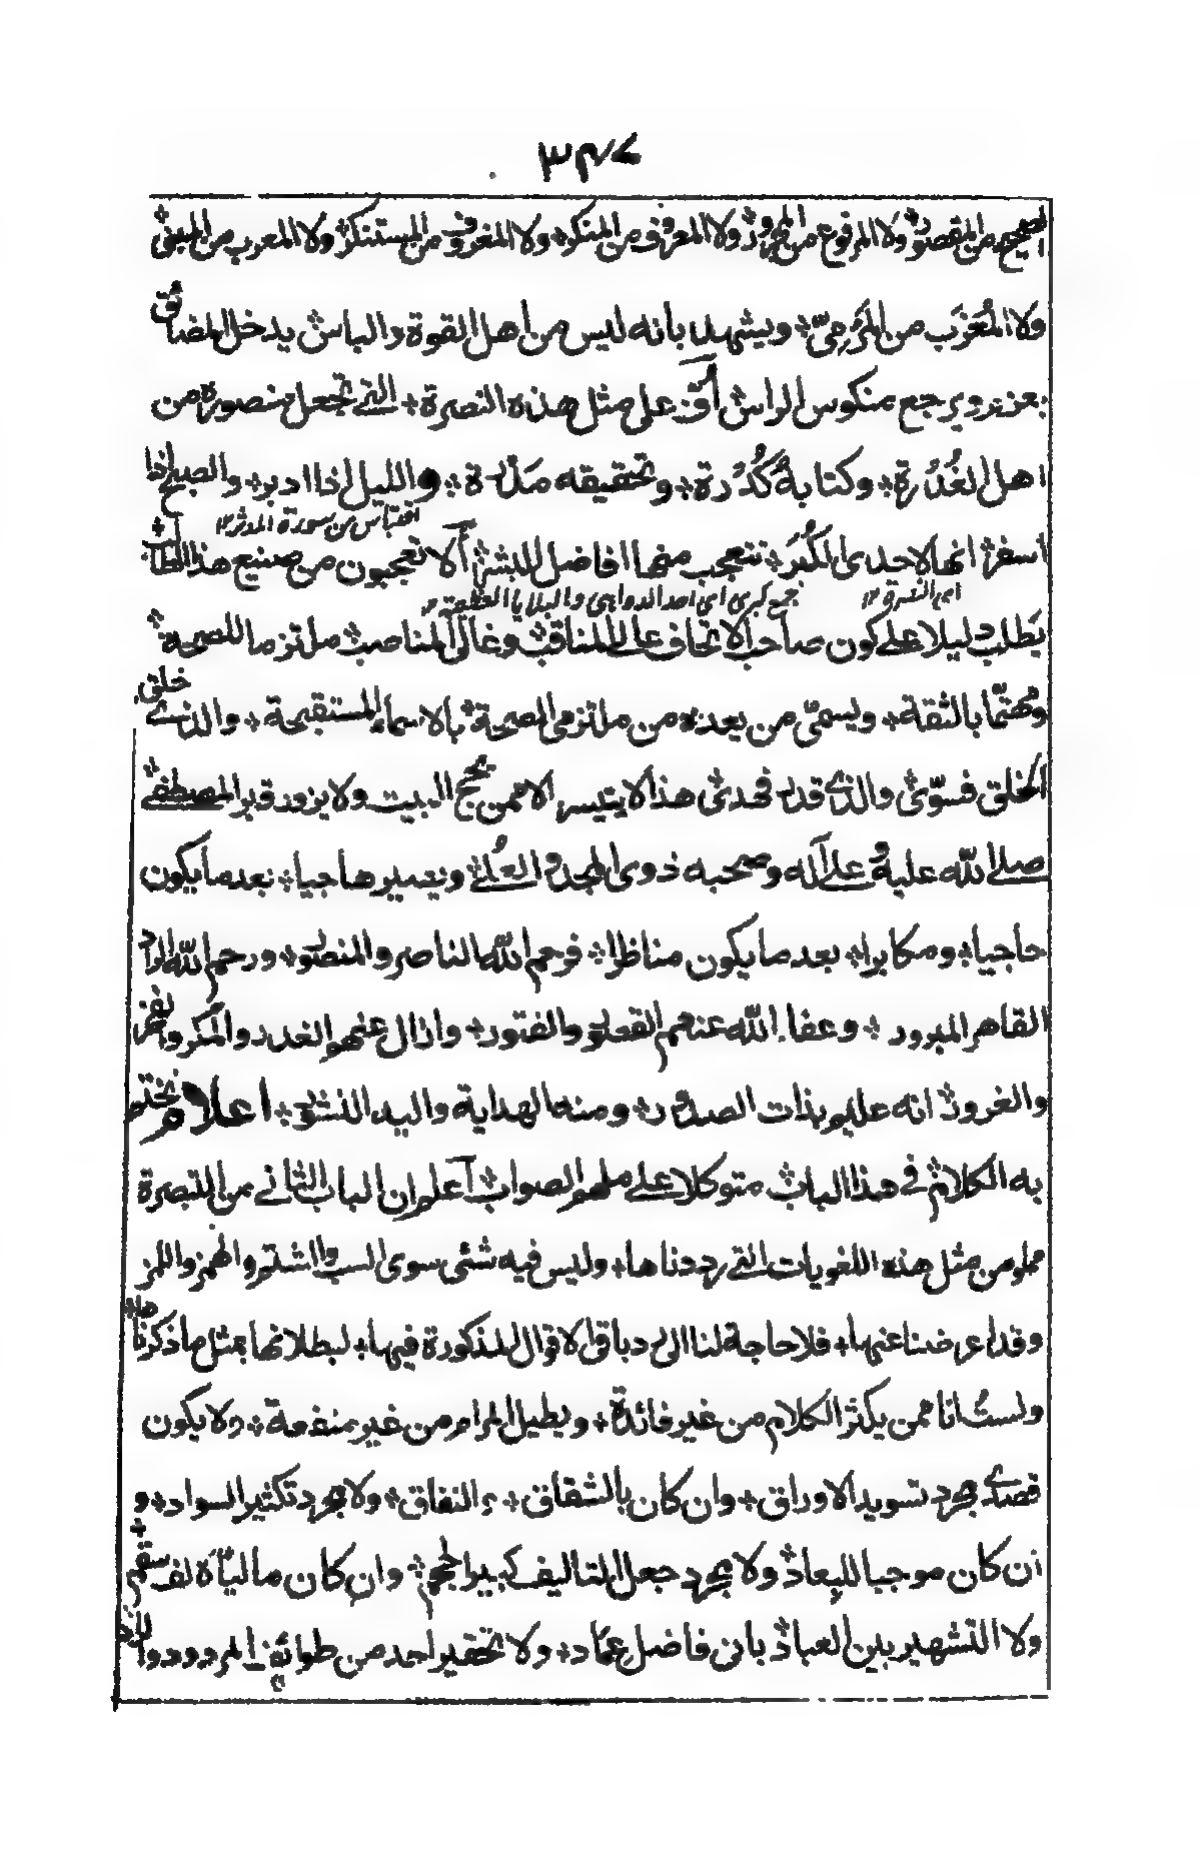 ٣٤٧
الصحيح من المقصور ولا المرفوع من المجرور ولا المعرف من المنكر ولا المعروف من المستنكر ولا المعرب من المبنى
ولا المعزب من المرمىّ ويشهد بانه ليس من اهل القوة والباس يدخل المضائق
بعزيز ويرجع منكوس الراس أفّ على مثل هذه النصرة التى تجعل منصوره من
اهل الغُدْرة وكتابهُ كُدْرة وتحقيقه مَذْرة والليل اذا ادبر والصبح اذا
اقتباس من سورة المدثر ١٢
أسفر انها لاحدى الكُبَر تتعجب منها افاضل البشر ألا تعجبون من صنيع هذا
اى النصرة ١٢
جمع كبرى اى احد الدواهى والبلايا العظيمة ١٢
يطلب دليلا على كون صاحب الاتحاف عالى المناقب وغالى المناصب ملتزما للصحة
ومهتمّا بالثقة ويسمىّ من يعده من ملتزمى الصحة بالاسماء المستقبحة والذى خلق
الخلق فسوّى والذى قدر فهدى هذا لا يتيسر الا ممن يحج البيت ولا يزور قبر المصطفى
صلى الله عليه وعلى آله وصحبه ذوى المجد والعُلى ويصير هاجيا بعد ما يكون
حاجيا ومكابرا بعد ما يكون مناظرا فرحم الله الناصر والمنصور ورحم الله الراد
القاهر المبرور وعفا الله عنهم القصور والفتور وازال عنهم الغدر والمكر والفخر
والغرور انه عليم بذات الصدور ومنه الهداية واليه النشور اعلام نختم
به الكلام فى هذا الباب متوكلا على ملهم الصواب آعلم ان الباب الثانى من التبصرة
مملو من مثل هذه اللغويات التى رددناها وليس فيه شئى سوى السب والشتم والهمز واللمز
وقد اعرضنا عنها فلا حاجة لنا الى رد باقى الاقوال المذكورة فيها لبطلانها بمثل ما ذكرناها
ولستُ انا ممن يكثر الكلام من غير فائدة ويطيل المرام من غير منفعة ولا يكون
قصدى مجرد تسويد الاوراق وان كان بالشقاق والنفاق ولا مجرد تكثير السواد و
ان كان موجبا للبعاد ولا مجرد جعل التاليف كبير الحجم وان كان ماليّاه لف سقم
ولا التشهير بين العباد بانى فاضل عماد ولا تحقير احد من طوائف المردودوا